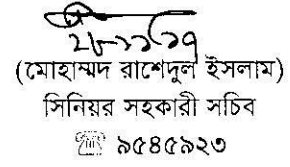 ২৮-১১/১৭
(মোহাম্মদ রাশেদুল ইসলাম)
সিনিয়র সহকারী সচিব
☏ ৯৫৪৫৯২৩